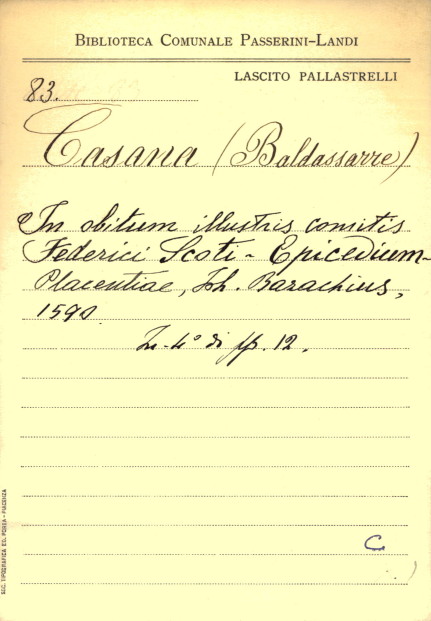 BIBLIOTECA COMUNALE PASSERINI-LANDI
LASCITO PALLASTRELLI
83.
Casana (Baldassarre)
In obitum illustris comitis
Federici Scoti - Epicedium -
Placentiae, Joh. Bazachius,
1590
In-4° di pp. 12.
C
SOC. TIPOGRAFICA ED. PORTA - PIACENZA